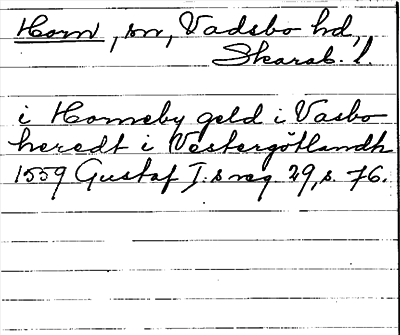 Horn, sn, Vadsbo hd,
Skarab. l.
i Horneby geld i Vasbo
heredt i Vestergötlandh
1559 Gustaf I:s reg. 29, s. 76.